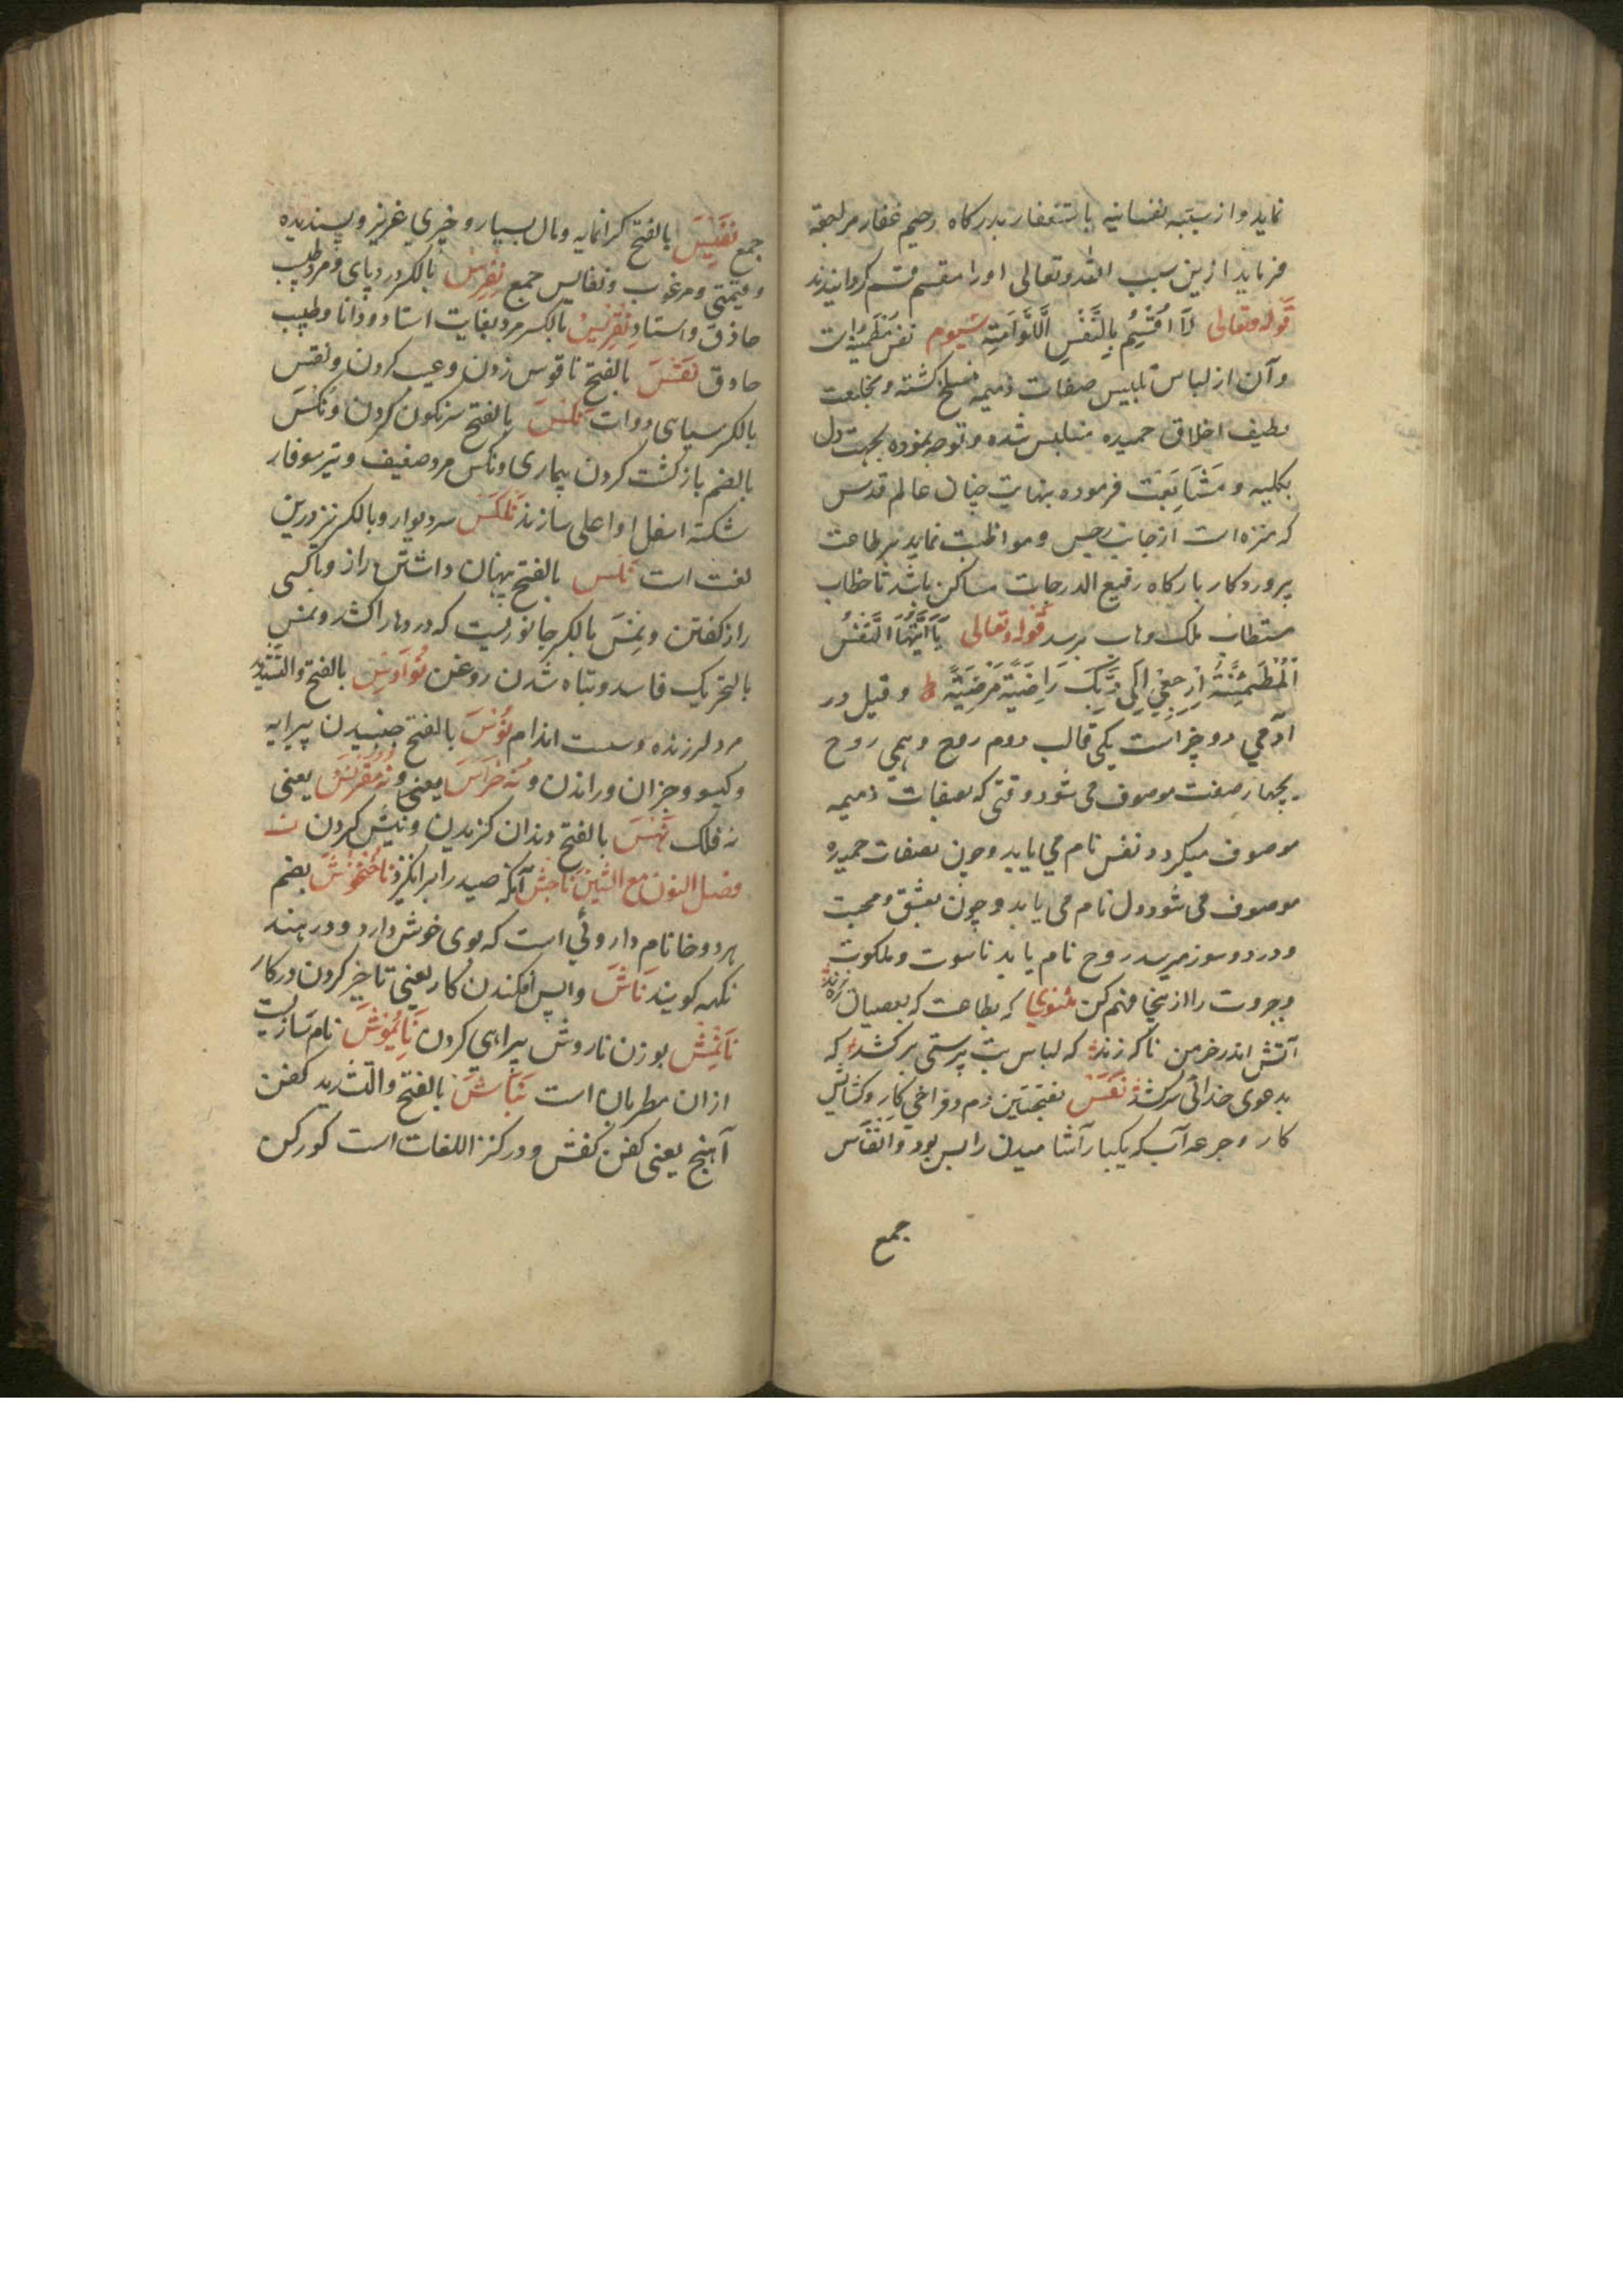 نماید و از سیئه نفسانیه باستغفار بدرکاه رحیم غفار مراجعه
فرماید ازین سبب الله وتعالی اورا مقسم قسم کردانیدند
قوله وتعالی لَا اُقْسِمُ بِالنَّفْسِ اللَّوَّامَتِهِ سیوم نفس مطمئنه است
و آن از لباس تلبیس صفات ذمیمه منسلخ کشته و بخلعت
لطیف اخلاق حمیده متلبس شده و توجه نموده بجهت دل
بکلیه و مُتَابَعَت فرموده بنهایت جناب عالم قدس
که منزه است از جانب رجس و مواظبت نماید بر طاعت
پروردکار بارکاه رفیع الدرجات ساکن باشد تا خطاب
مستطاب ملک وهاب برسد قوله وتعالی یَا اَیَّتُهَا النَّفْسُ
الْمُطْمَئِنَّةُ اِرْجِعِي اِلٰی رَبِّکَ رَاضِیَةً مَرْضِیَّةً ط و قیل در
آدمي دو چیز است یکی قالب دوم روح و همی روح
بچهار صفت موصوف می شود وقتی که بصفات ذمیمه
موصوف میکردد نفس نام می یابد و چون بصفات حمیده
موصوف می شود دل نام می یابد و چون بعشق و محبت
و درد و سوز میرسد روح نام یابد ناسوت و ملکوت
و جبروت را از ینجا فهم کن مثنوی که بطاعت که بعصیان
آتش اندر خرمن ناکه زند که لباس بت پرستی برکشد که
بدعوی خدائی سرکشد نَفَسَ بفتحتین دم و فراخي کار و کشایش
کار و جرعه آب که یکبار آشامیدن را بس بود و اَنْفَاس
جمع
جمع نَفِیسَ بالفتح کرانمایه و مال بسیار و چیزي عزیز و پسندیده
و قیمتي و مرغوب و نفایس جمع نِقْرِسْ بالکسر درد پای و مرد طبیب
حاذق و استاد نِقْرِیسْ بالکسر مرد بغایت استاد و دانا و طبیب
حاذق نَقْسَ بالفتح ناقوس زدن و عیب کردن و نقس
بالکسر سیاهی دوات نَکْسَ بالفتح سرنکون کردن و نُکْسَ
بالضم بازکشت کردن بیماری و نکس مرد ضعیف و تیر سوفار
شکسته اسفل او اعلی سازند سر دیوار و بالکسر نیز درین
لغت است نمس بالفتح پنهان داشتن راز و باکسی
راز کفتن و نِمْسَ بالکسر جانوریست که در وها راکشد و نمس
بالتحریک فاسد و تباه شدن روغن نُوَّاوِسْ بالفتح والتشدید
مرد لرزنده و سست اندام نَوْسَ بالفتح جنبیدن پیرایه
و کیسو و جزان و راندن و نُه خَرَاسَ یعنی و نه مقرنس یعنی
نه فلک نَهْسَ بالفتح دندان کزیدن و نیش کردن ن
فصل النون مع الشین نَاجِشْ آنکه صید را برانکیزد نَاخُنْخوُش بضم
هر دو خا نام داروئي است که بوی خوش دارد و در هند
نکهه کویند نَاَشَ واپس افکندن کار یعنی تاخیر کردن در کار
بوزن نا روش بیراهي کردن نام سازیست
ازان مطربان است نَبَّاشَ بالفتح والتشدید کفن
آهنج یعنی کفن کش و در کنز اللغات است کورکن